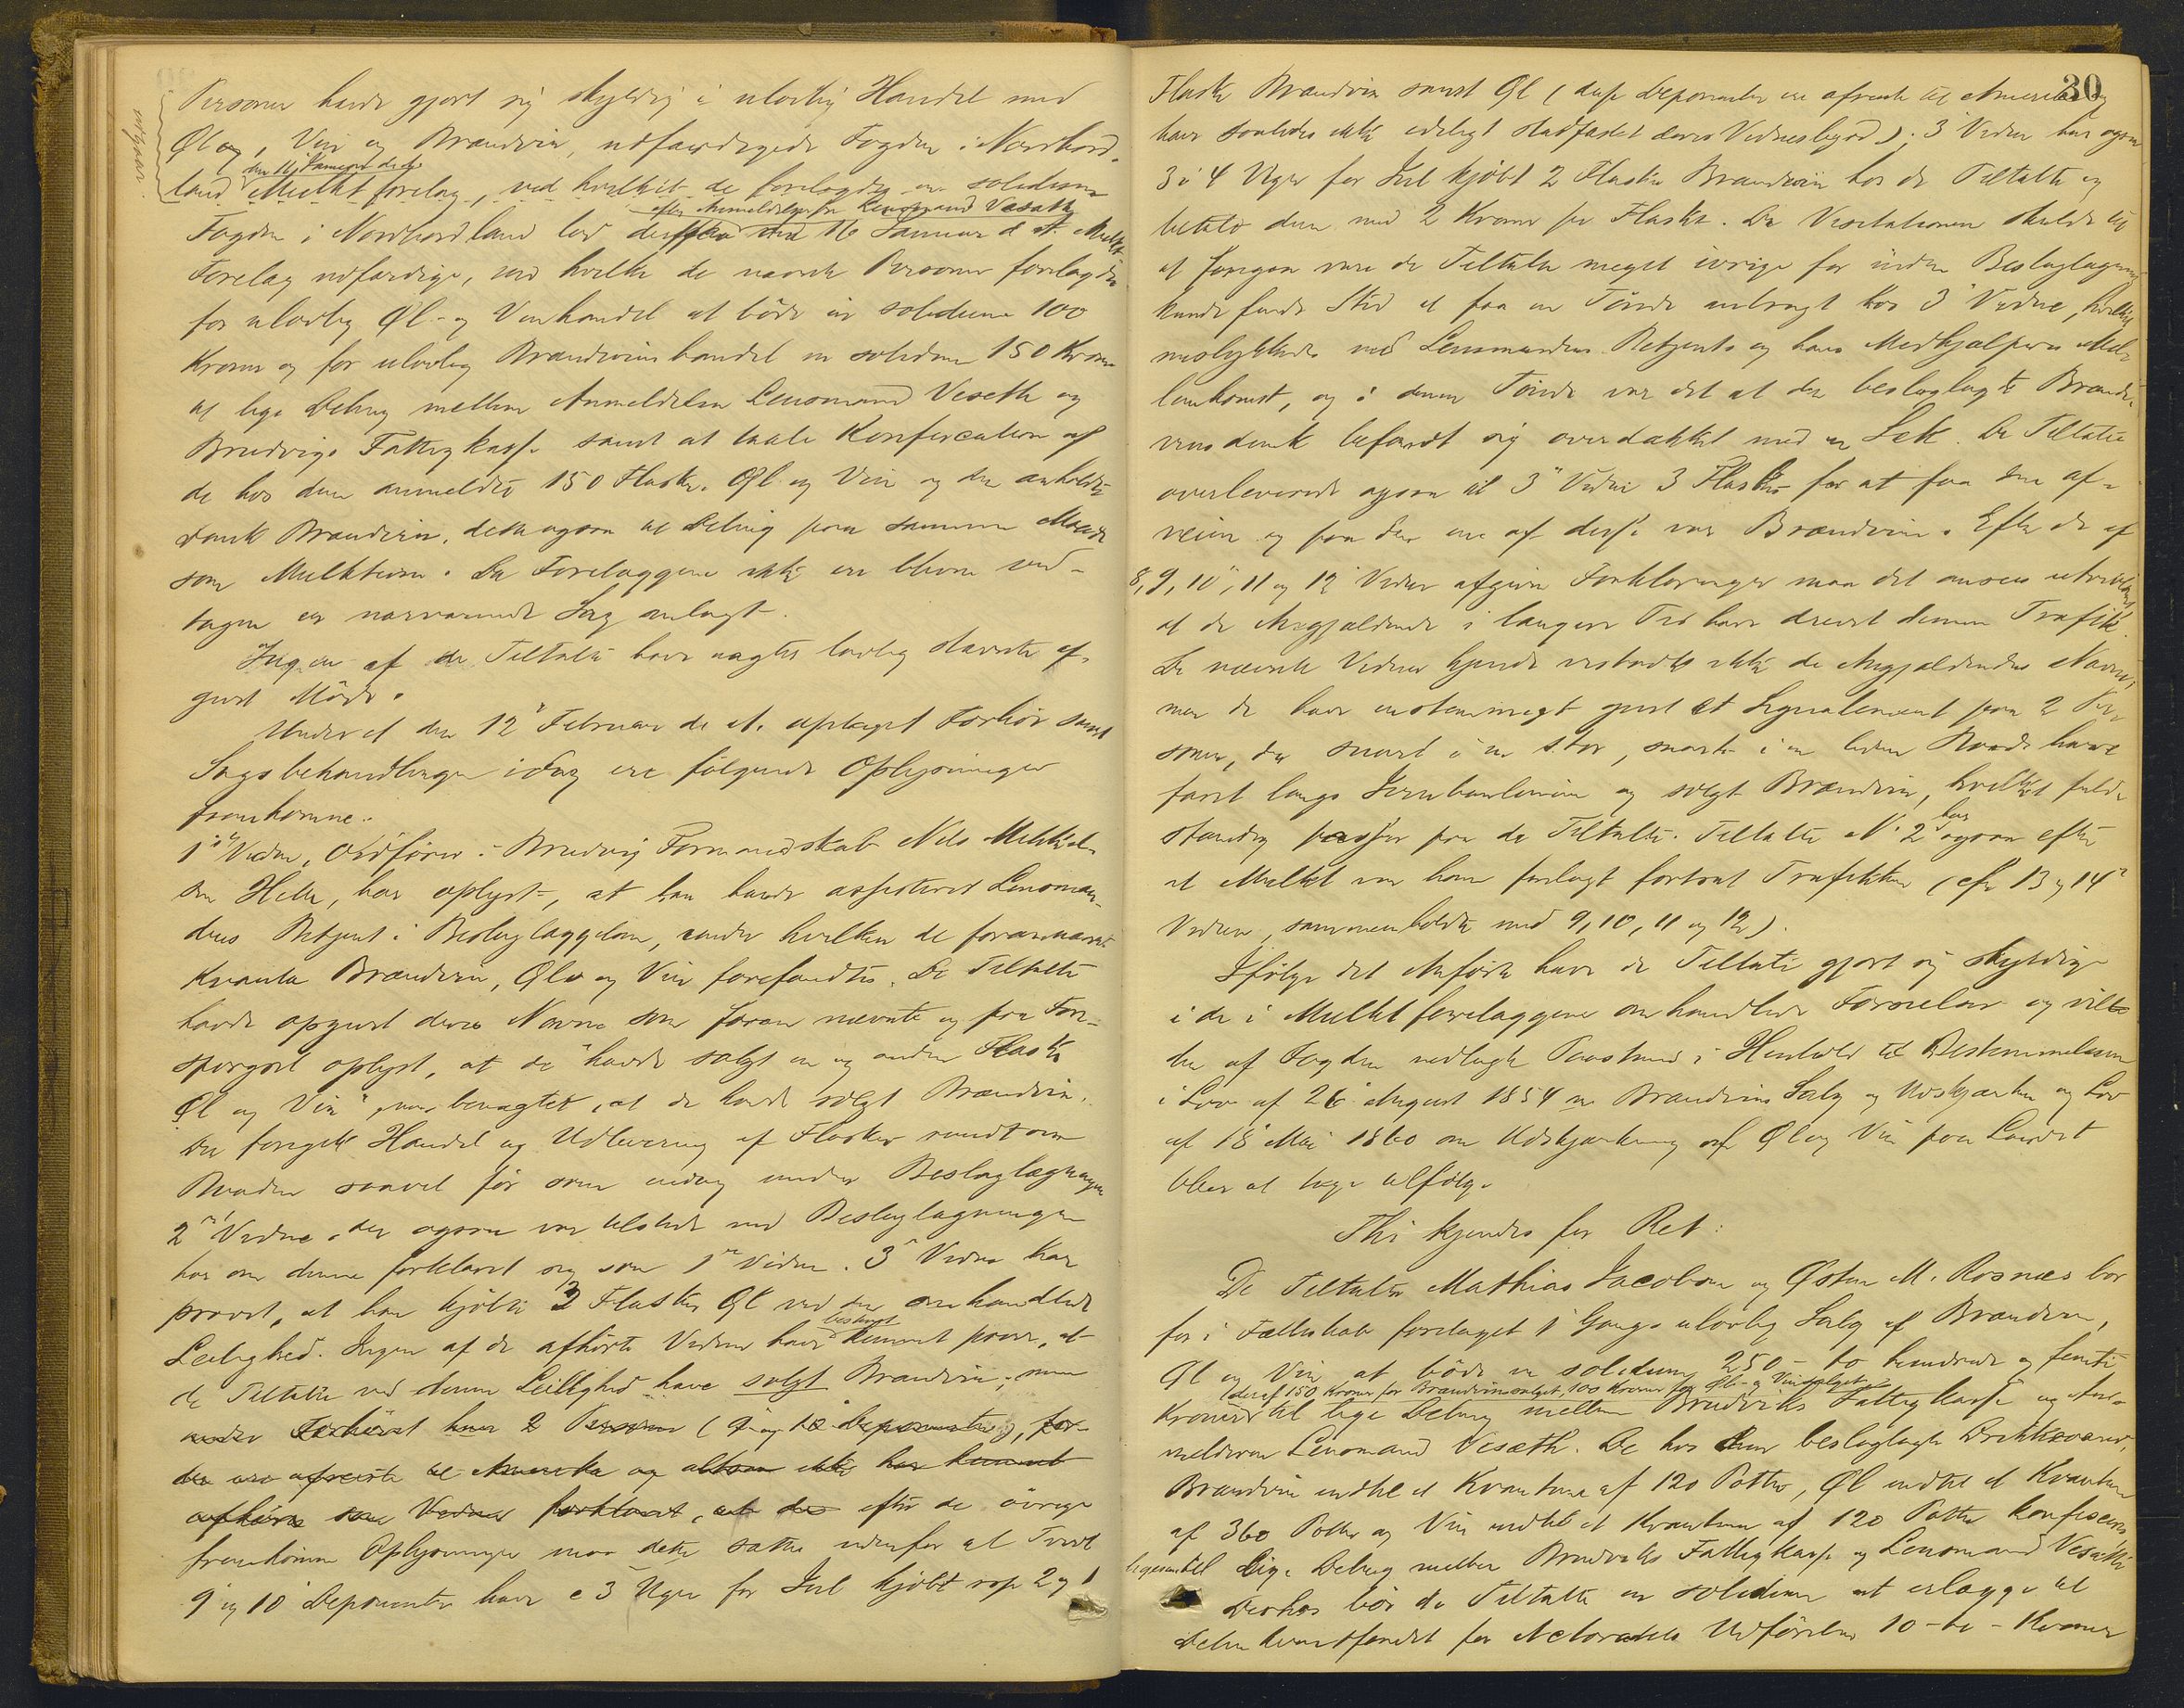 Personer havde gjort sig skyldig i ulovlig Handel med
Øl og, Vin og Brændevin, udfærdigede Fogden i Nordhord-
udgaar.
den 16 Januar d. A.
land Mulktforelæg, ved hvilket de forelagdes in solidum
efter Anmeldelse fra Lensmand Veseth
Fogden i Nordhordland lod derpaa den 16 Januar d. A. Mulkt
Forelæg udfærdige, ved hvilke de nævnte Personer forelagdes
for ulovlig Øl- og Vinhandel at bøde in solidum 100
Kroner og for ulovlig Brændevinshandel in solidum 150 Kroner
at lige Deling mellem Anmelderen Lensmand Veseth og
Bruvigs Fattigkasse samt at taale Konfiscation af
de hos dem anmeldte 150 Flasker Øl og Vin og den anholdte
Dunk Brændevin, dette ogsaa til Deling paa samme Maade
som Mulkterne. Da Forelæggene ikke ere blevne ved-
tagne er nærværende Sag anlagt.
Ingen af de Tiltalte have nogtes lovlig Stævnte af-
givet Møde.
Under et den 12te Februar d. A. optaget Forhør samt
Sagsbehandlingen idag ere følgende Oplysninger
fremkomne.
1ste Vidne, Ordfører i Bruvig Formandskab Nils Mikkel-
sen Helle, har oplyst, at han havde assisteret Lensman-
dens Betjent i Beslaglæggelsen, under hvilken de forannævnte
Kvanta Brændevin, Øl og Vin forefandtes. De Tiltalte
havde opgivet deres Navne som foran nævnte og paa Fore-
spørgsel oplyst, at de "havde solgt en og anden Flaske
Øl og Vin", men benægtet, at de havde solgt Brændevin.
Der foregik Handel og Udlevering af Flasker rundt om
Baaden saavel før som endog under Beslaglægningen
2det Vidne, der ogsaa var tilstede ved Beslaglægningen
har om denne forklaret sig som 1ste Vidne. 3die Vidne har
prøvet, at han kjøbte 2 Flasker Øl ved den omhandlede
bestemt
Leilighed. Ingen af de afhørte Vidner have kunnet paavise, at
de Tiltalte ved denne Leilighed have solgt Brændevin; men
under Forhøret have 2 Personer (9 og 10 Deponenter), for-
der ere afreiste til Amerika og altsaa ikke har kunnet
afhøres som Vidner forklaret, at de efter de øvrige
fremkomne Oplysninger maa dette sættes udenfor al Tvivl
9 og 10 Deponenter have c 3 Uger før Jul kjøbt resp 2 og 1
30
Flaske Brændevin samt Øl (disse Deponenter ere afreiste til Amerika og
have saaledes ikke edeligt stadfæstet deres Vidnesbyrd). 3 Vidne har ogsaa
3 à 4 Uger før Jul kjøbt 2 Flasker Brændevin hos de Tiltalte og
betalt dem med 2 Kroner pr Flaske. Da Visitationen skulde til
at foregaa vare de Tiltalte meget ivrige for inden Beslaglægning
kunde finde Sted at faa en Tønde anbragt hos 3 Vidne, hvilket
mislykkedes ved Lensmandens Betjents og hans Medhjælperes Mel-
lemkomst, og i denne Tønde var det at den beslaglagte Brænde-
vinsdunk befandt sig overdækket med en Sæk. De Tiltalte
overleverede ogsaa til 3 Vidne 3 Flasker for at faa dem af-
veien og paa den ene af disse var Brændevin. Efter de af
8, 9, 10, 11 og 12 Vidner afgivne Forklaringer maa det ansees utvivlsomt
at de Angjældende i længere Tid have drevet denne Trafik.
De nævnte Vidner kjende vistnok ikke de Angjældendes Navne,
men de have enstemmigt givet et Signalement paa 2 Per-
soner, der snart i en stor, snart i en liden Baad have
faret langs Jernbanelinien og solgt Brændevin, hvilket fuld-
har
stændig passer paa de Tiltalte. Tiltalte No 2 ogsaa efter
at Mulkt var ham forelagt fortsat Trafikken (cfr 13 og 14
Vidner, sammenholdt med 9, 10, 11 og 12).
Ifølge det Anførte have de Tiltalte gjort sig skyldige
i de i Mulktforelæggene omhandlede Forseelser og vil
den af Fogden nedlagte Paastand i Henhold til Bestemmelserne
i Lov af 26 August 1854 om Brændevins Salg og Udskjænkn og Lov
af 18 Mai 1860 om Udskjænkning af Øl og Vin paa Landet
blive at tage tilfølge.
Thi kjendes for Ret:
De Tiltalte Mathias Jacobsen og Østen M. Rosnæs bør
for i Fælleskab foretaget 1 Gangs ulovlig Salg af Brændevin,
Øl og Vin at bøde in solidum 250 - to hundrede og femti
(deraf 150 Kroner for Brændevinssalget, 100 Kroner for Øl- og Vinsalget)
Kroner til lige Deling mellem Bruviks Fattigkasse og An-
melderen Lensmand Veseth. De hos dem beslaglagte Drikkevarer,
Brændevin indtil et Kvantum af 120 Potter, Øl indtil et Kvantum
af 360 Potter og Vin indtil et Kvantum af 120 Potter konfiskeres
ligesaa til lige Deling mellem Bruviks Fattigkasse og Lensmand Veseth
Derhos bør de Tiltalte in solidum at erlægge til
Delinkventfondet for Actoratets Udførelse 10 - ti - Kroner